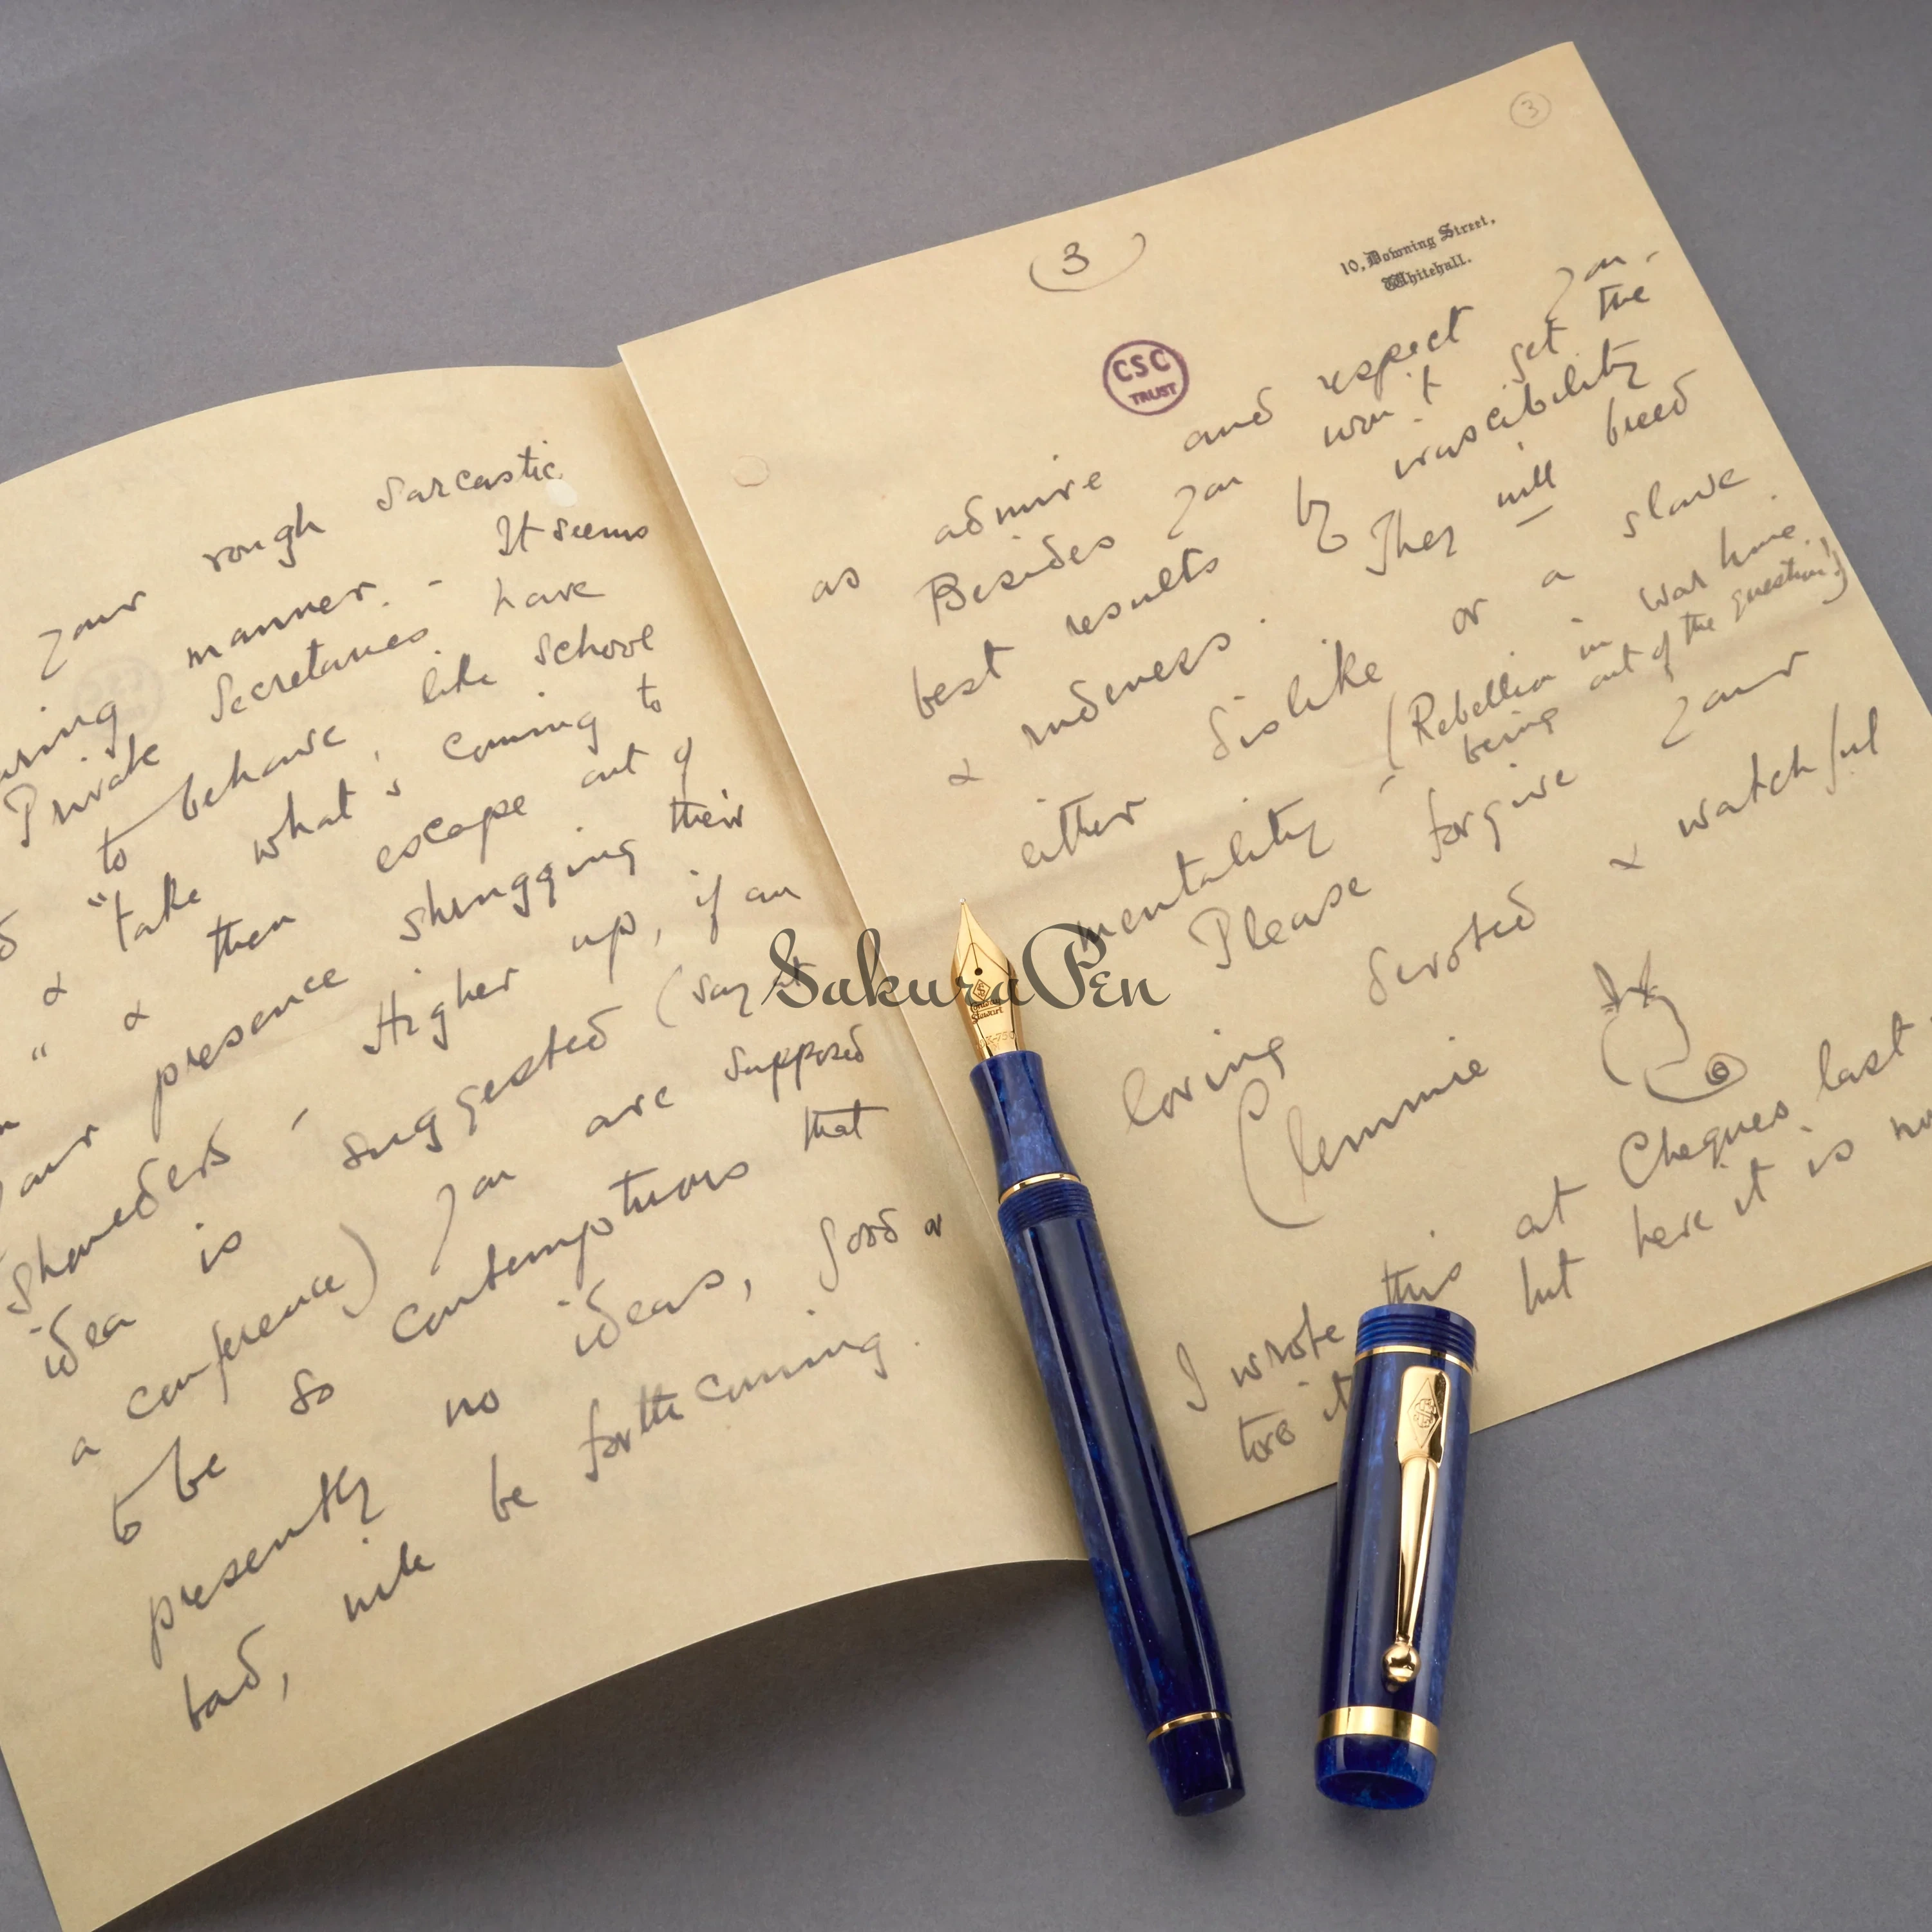 your rough sarcastic
manner. - It seems
Private Secretaries have
to behave like school
"take what's coming to
" & then escape out of
& presence shrugging their
shoulders - Higher up, if an
idea is suggested (say at
a conference) you are supposed
to be so contemptuous that
presently no ideas, good or
bad, will be forthcoming.
3
3
10, Downing Street,
Whitehall.
CSC
TRUST
as admire and respect you -
Besides you won't get the
best results by irascibility
& rudeness. They will breed
either dislike or a slave
mentality - (Rebellion in War time
being out of the question!)
Please forgive your
loving devoted & watchful
Clemmie
I wrote this at Chequers last
tore it but here it is now
SakuraPen
Stewart